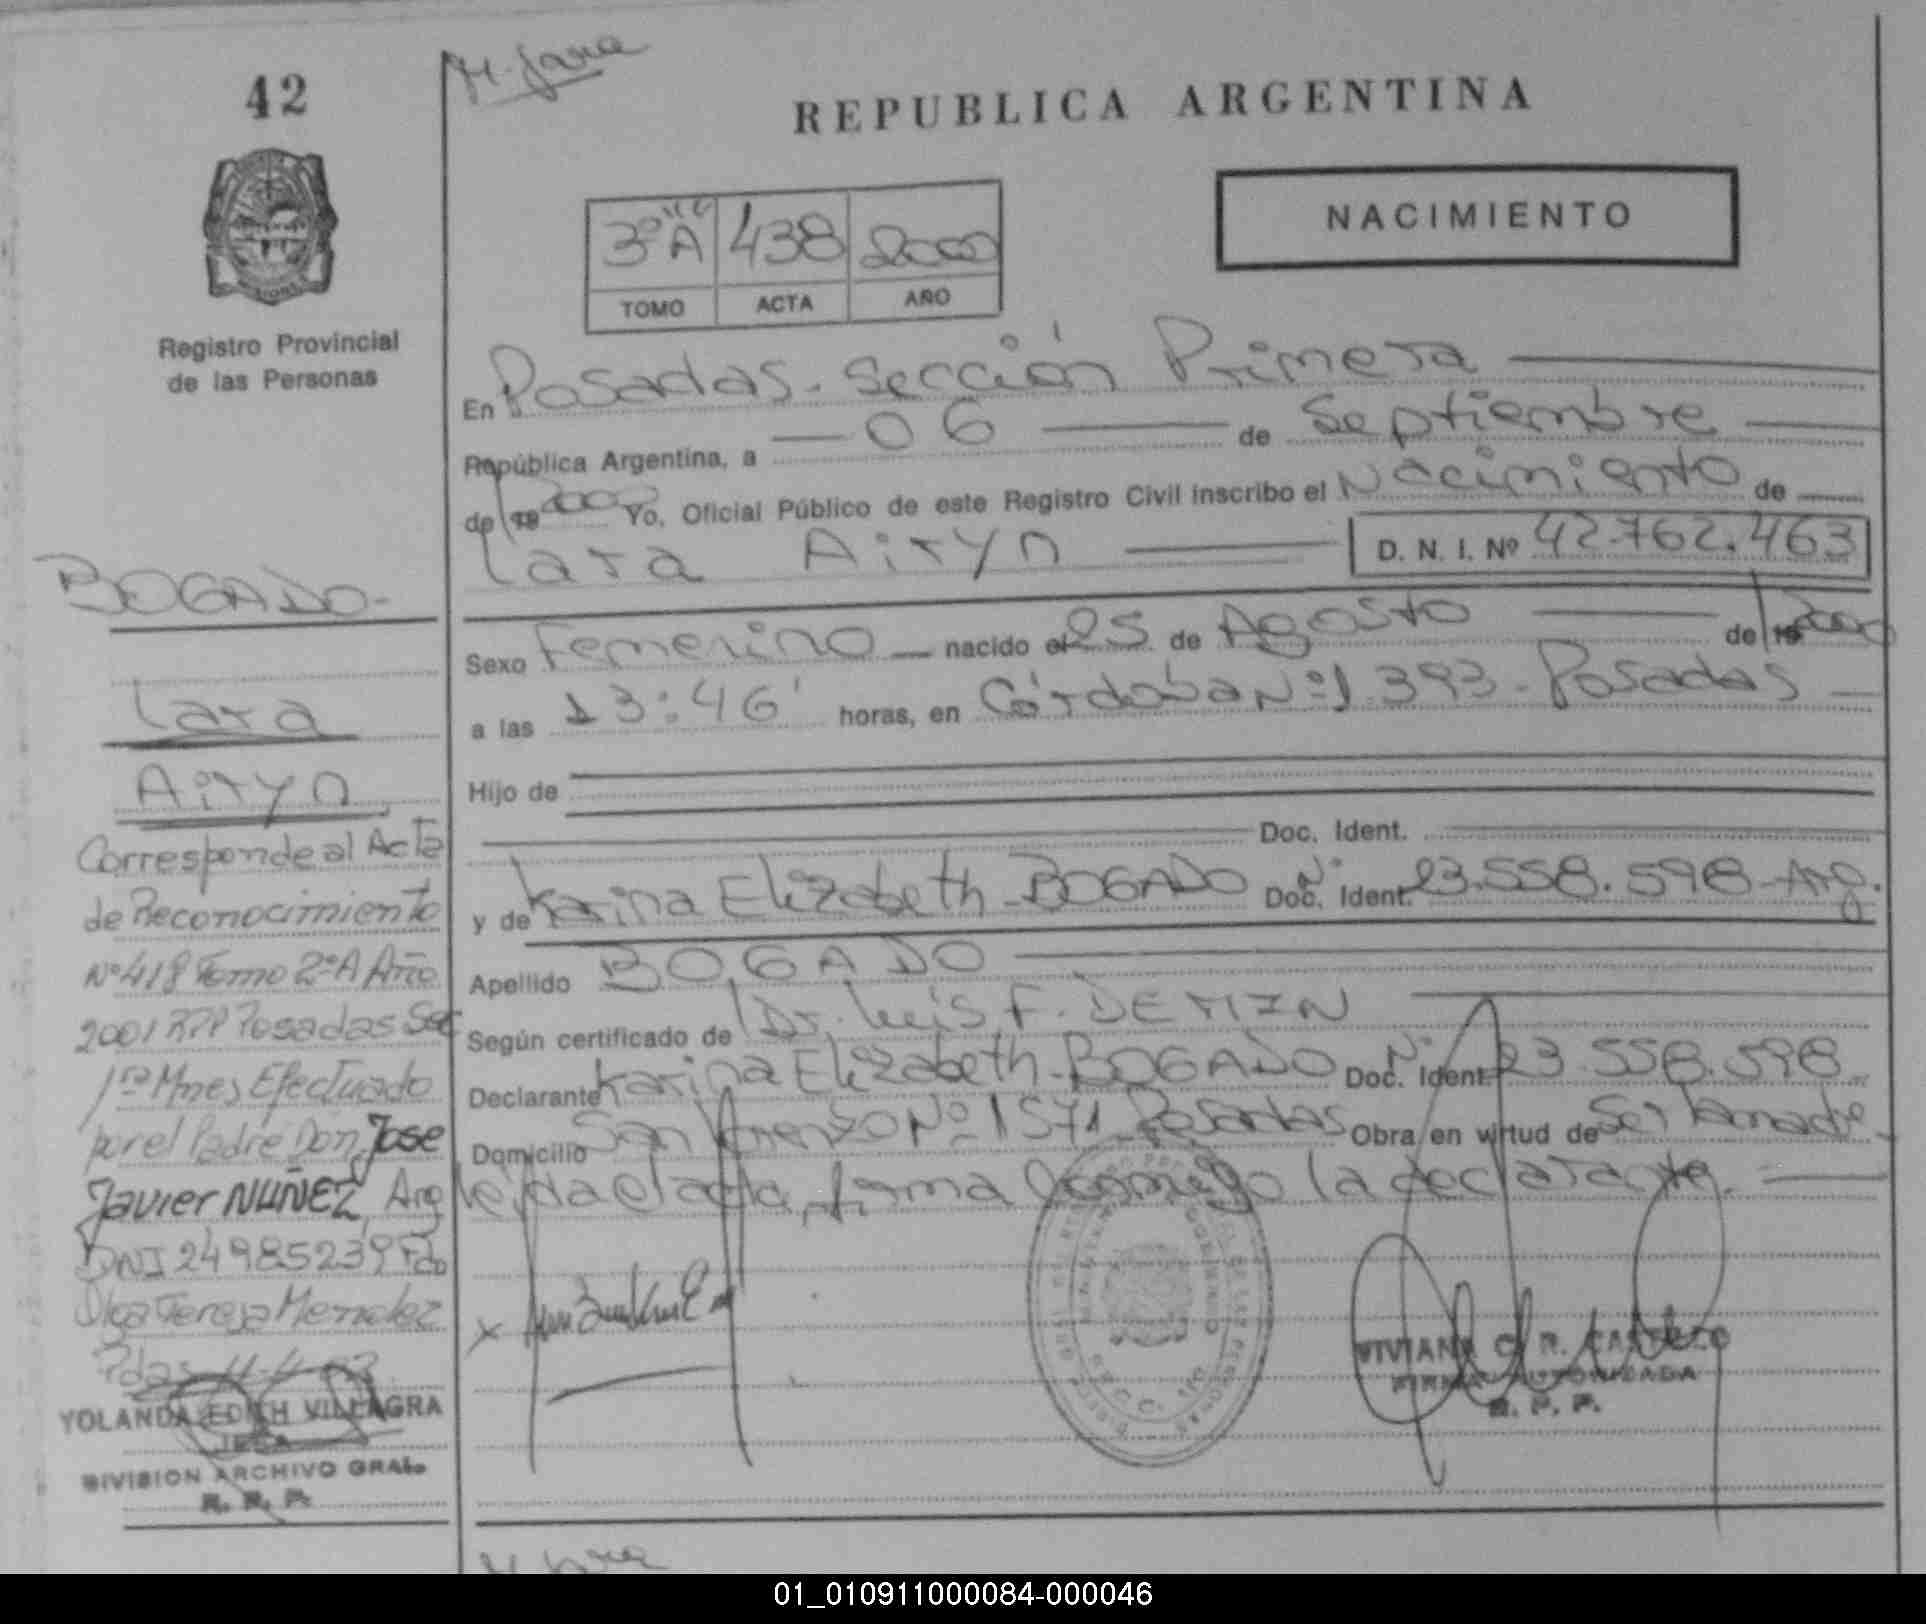 42
Registro Provincial
de las Personas
BOGADO-
Lara
Airyn
Corresponde al Acta
de Reconocimiento
Nº 418 Tomo 2ºA Año
2001 RPP Posadas Sec
1ra Mnes Efectuado
por el Padre Don Jose
Javier NUÑEZ, Arg
DNI 24985239 Fdo
Olga Teresa Mendez
Pdas 11-4-03
YOLANDA EDITH VILLAGRA
JEFA
DIVISION ARCHIVO GRAL.
R. P. P.
REPUBLICA ARGENTINA
NACIMIENTO
3º"A" 438 2000
TOMO ACTA AÑO
En Posadas - Sección Primera
República Argentina, a 06 de Septiembre
de 19 2000 Yo, Oficial Público de este Registro Civil inscribo el Nacimiento de
Lara Airyn D. N. I. Nº 42.762.463
Sexo Femenino nacido el 25 de Agosto de 19 2000
a las 13:46' horas, en Córdoba Nº 1.393 - Posadas
Hijo de
Doc. Ident.
y de Karina Elizabeth BOGADO Doc. Ident. Nº 23.558.598 - Arg.
Apellido BOGADO
Según certificado de Dr. Luis F. DEMIN
Declarante Karina Elizabeth BOGADO Doc. Ident. Nº 23.558.598
Domicilio San Lorenzo Nº 1571 Posadas Obra en virtud de Ser la madre
leída el acta, firma conmigo la declarante.
VIVIANA C. R. CASTELO
FIRMA AUTORIZADA
R. P. P.
01_010911000084-000046